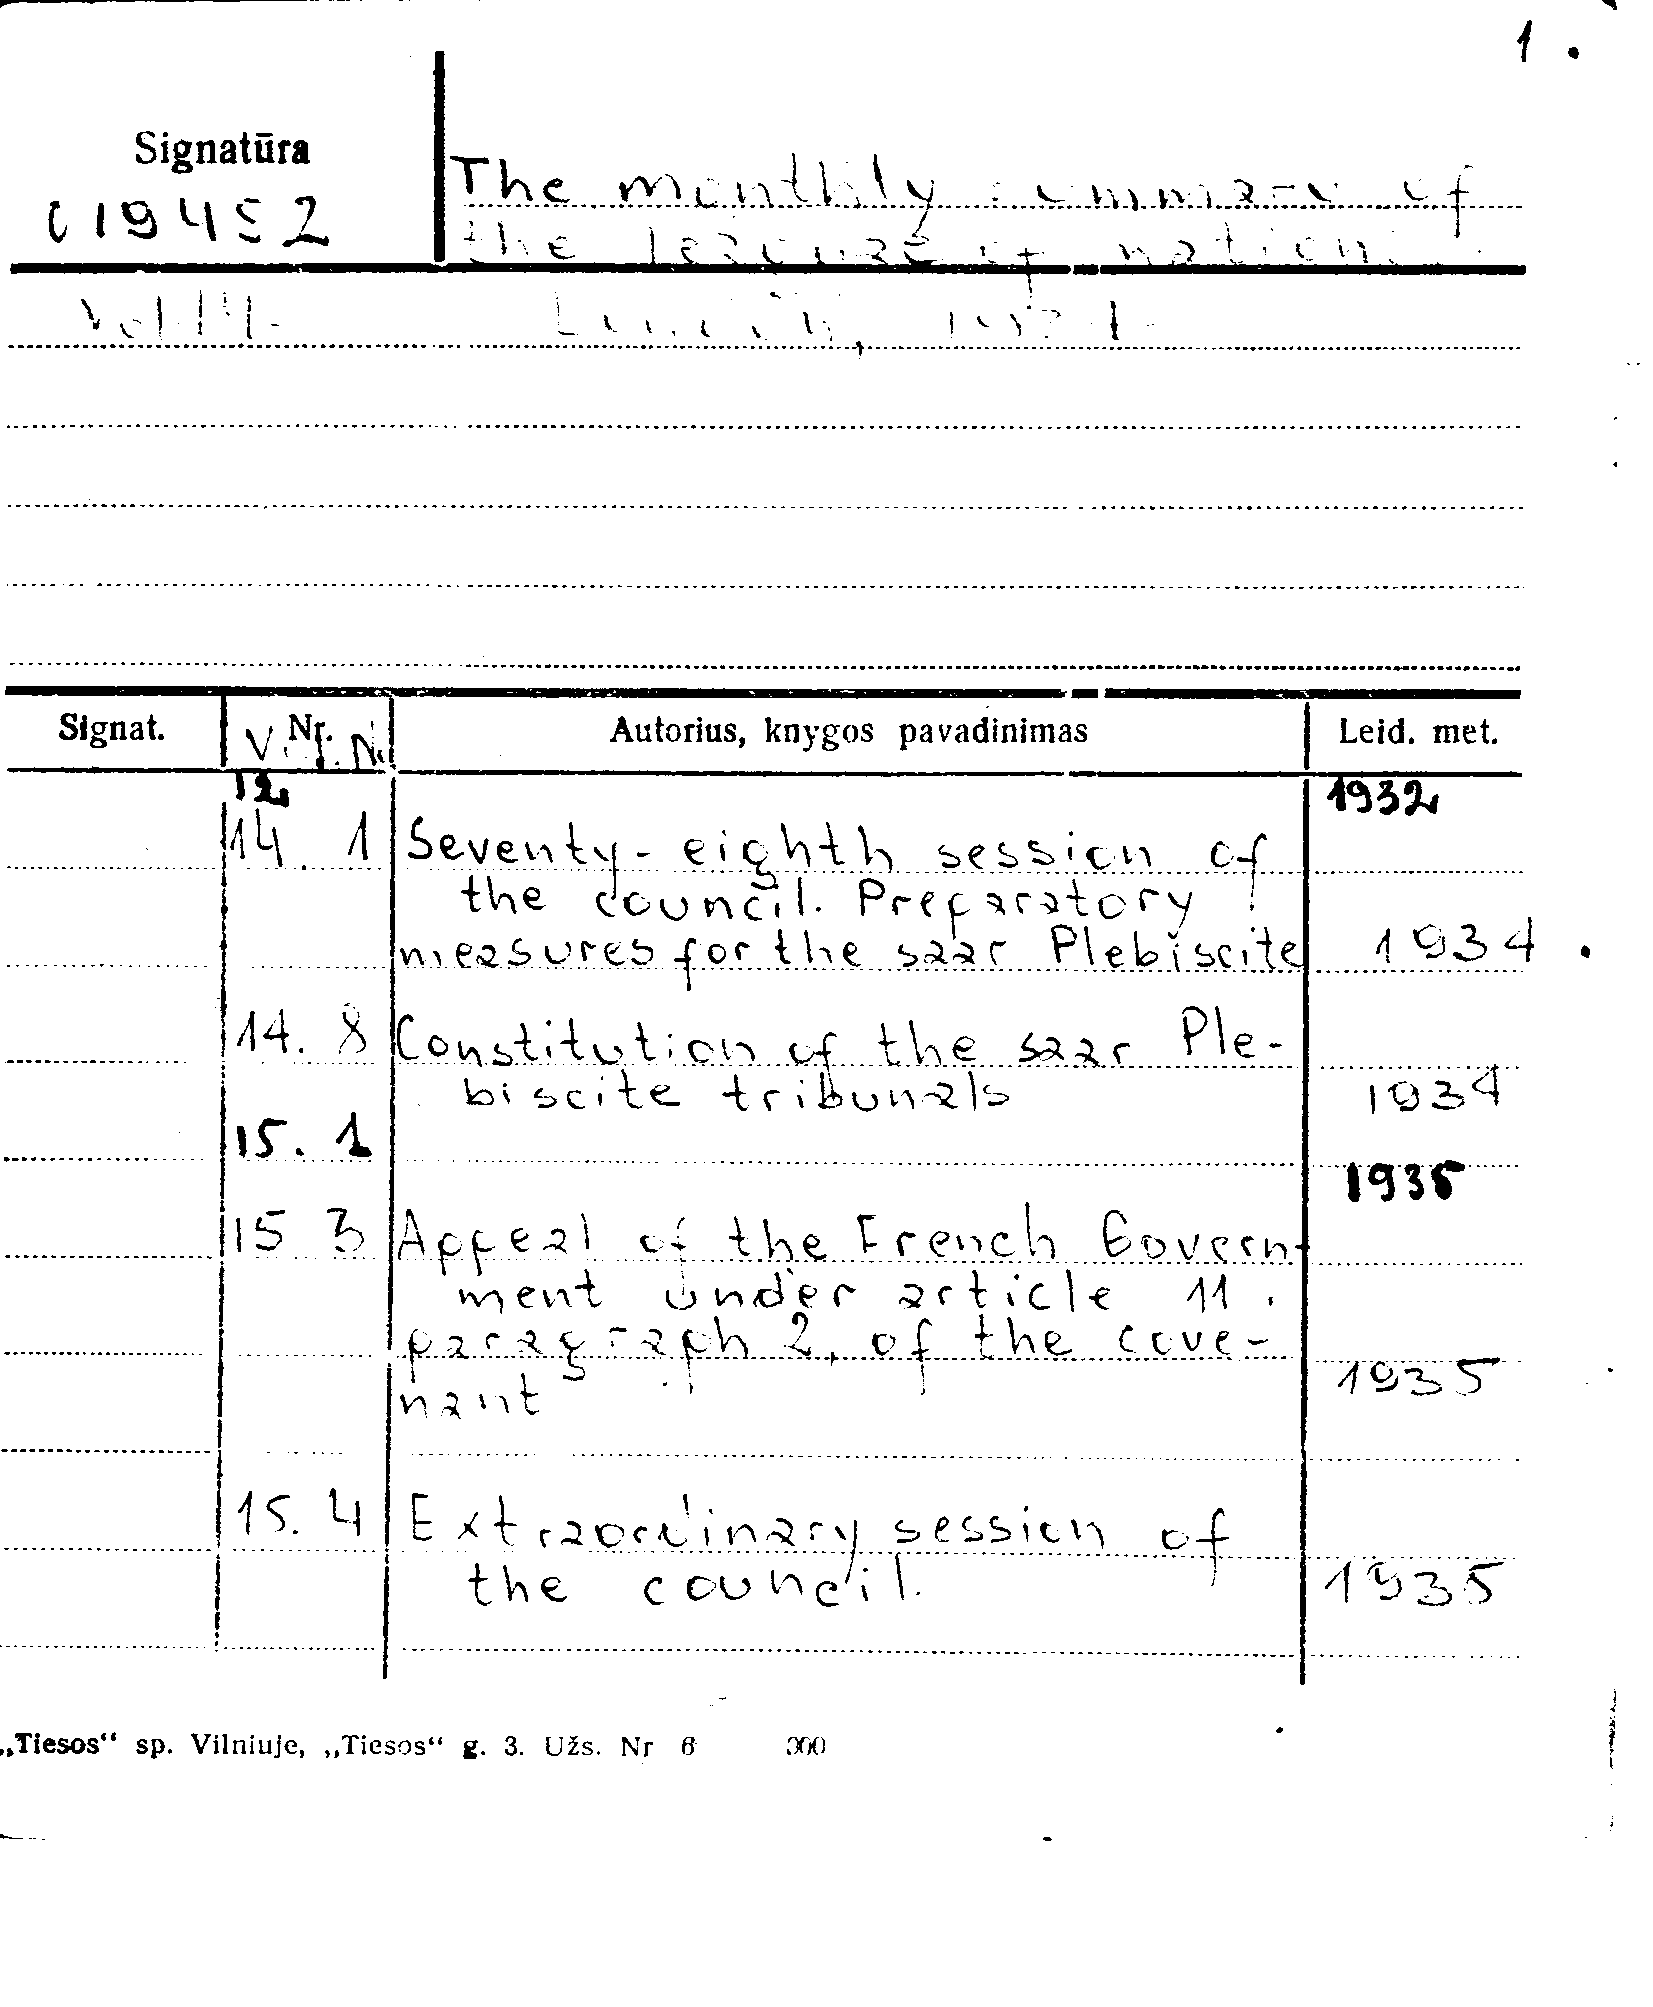 1.
Signatūra
C19452
The monthly summary of
the league of nations.
Vol 14. 1934.
Signat. Nr. Autorius, knygos pavadinimas Leid. met.
V. N.
12 1932
14. 1 Seventy-eighth session of
the council. Preparatory
measures for the saar Plebiscite 1934
14. 8 Constitution of the saar Ple-
biscite tribunals 1934
15. 1
1935
15 3 Appeal of the French Govern-
ment under article 11.
paragraph 2, of the cove-
nant 1935
15. 4 Extraordinary session of
the council. 1935
„Tiesos“ sp. Vilniuje, „Tiesos“ g. 3. Užs. Nr 6 300